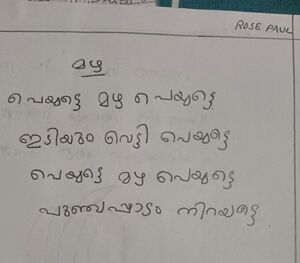 ROSE PAUL
മഴ
പെയ്യട്ടെ മഴ പെയ്യട്ടെ
ഇടിയും വെട്ടി പെയ്യട്ടെ
പെയ്യട്ടെ മഴ പെയ്യട്ടെ
പുഞ്ചപ്പാടം നിറയട്ടെ